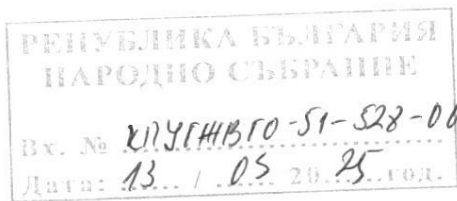 РЕПУБЛИКА БЪЛГАРИЯ
НАРОДНО СЪБРАНИЕ
Вх. № КПУГЖВГО-51-528-06
Дата: 13 / 05 2025 год.